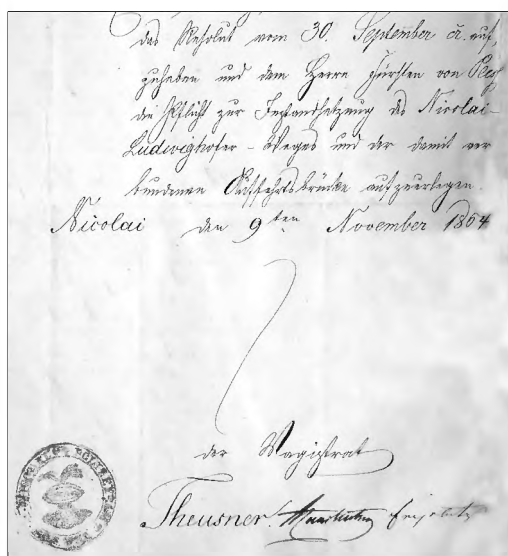 das Resolut vom 30. September cr. auf,
zuheben und dem Herrn Fürsten von Pleß
die Pflicht zur Instandsetzung des Nicolai-
Ludwighofer-Weges und der damit ver
bundenen Auffahrtsbrücke aufzuerlegen.
Nicolai den 9ten November 1864
der Magistrat
Theusner